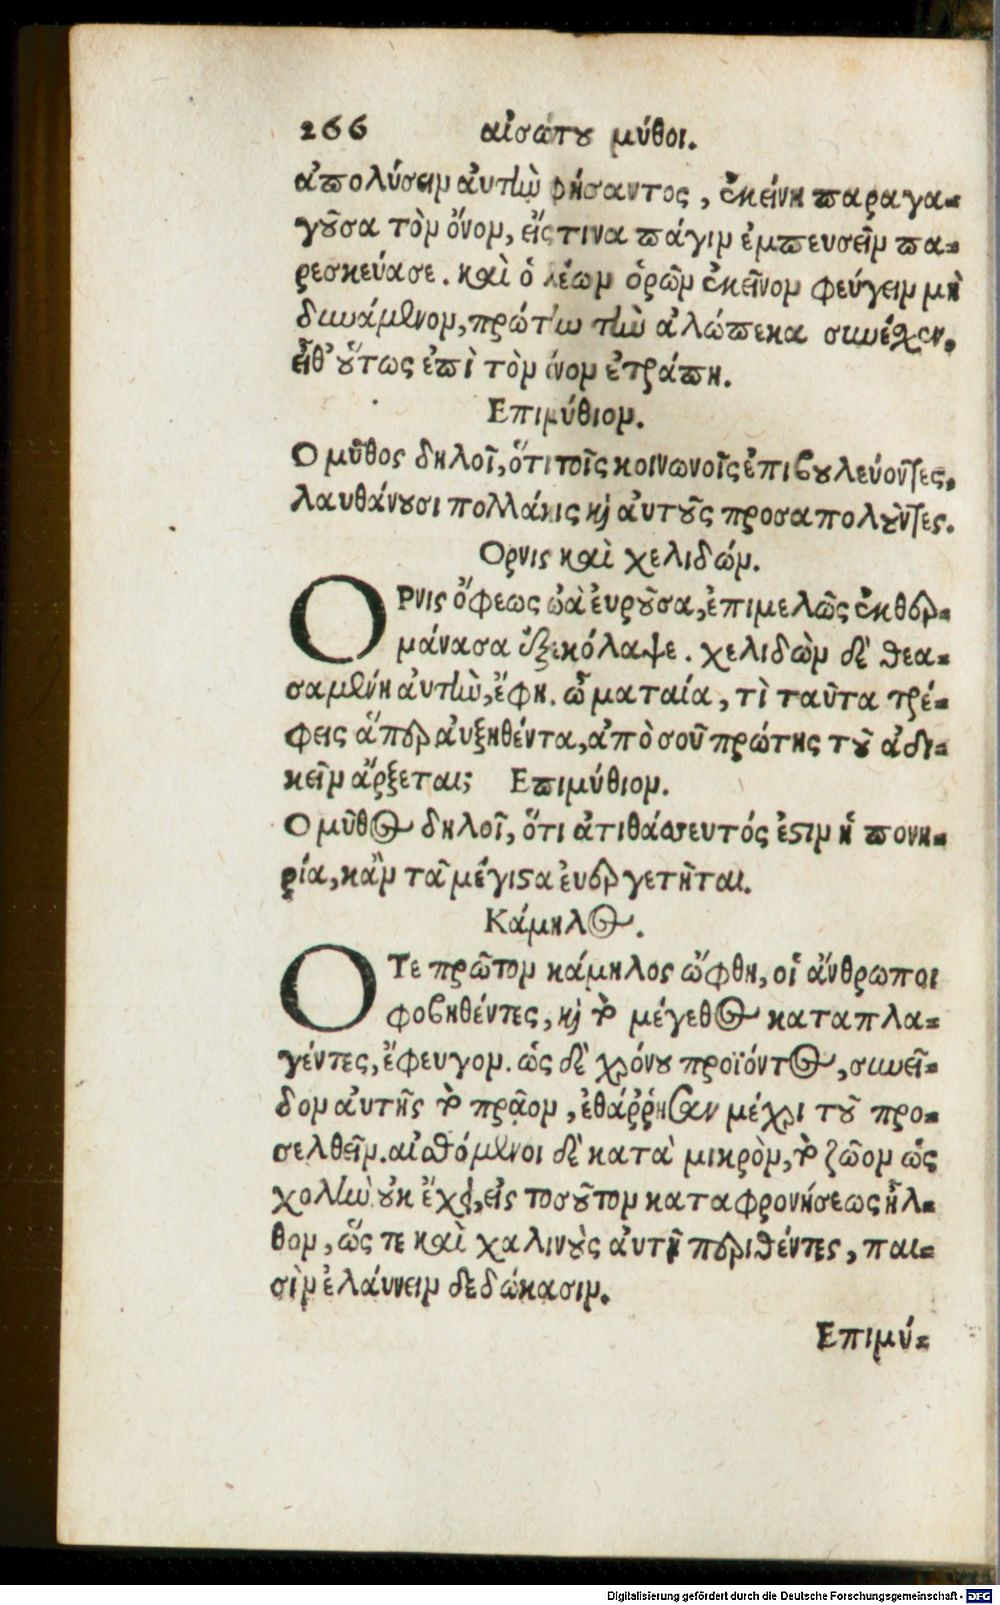 266 αἰσώπου μύθοι.
ἀπολύσειν αὐτὴν φήσαντος, ἐκείνη παραγα-
γοῦσα τὸν ὄνον, εἴς τινα πάγιν ἐμπευσεῖν πα-
ρεσκεύασε. καὶ ὁ λέων ὁρῶν ἐκεῖνον φεύγειν μὴ
δυνάμενον, πρώτην τὴν ἀλώπεκα συνέχεν,
εἶθ' οὕτως ἐπὶ τὸν ὄνον ἐτράπη.
Επιμύθιον.
Ο μῦθος δηλοῖ, ὅτι τοῖς κοινωνοῖς ἐπιβουλεύοντες,
λαυθάνουσι πολλάκις καὶ αὐτοὺς προσαπολοῦντες.
Ορνις καὶ χελιδών.
ΟΡνις ὄφεως ὠὰ εὑροῦσα, ἐπιμελῶς ἐκθερ-
μάνασα ἐξεκόλαψε. χελιδὼν δὲ θεα-
σαμένη αὐτὴν, ἔφη. ὦ ματαία, τὶ ταῦτα τρέ-
φεις ἅπερ αὐξηθέντα, ἀπὸ σοῦ πρώτης τοῦ ἀδι-
κεῖν ἄρξεται; Επιμύθιον.
Ο μῦθος δηλοῖ, ὅτι ἀτιθάσευτός ἐστιν ἡ πονη-
ρία, κἂν τὰ μέγιστα εὐεργετῆται.
Κάμηλος.
ΟΤε πρῶτον κάμηλος ὤφθη, οἱ ἄνθρωποι
φοβηθέντες, καὶ τὸ μέγεθος καταπλα-
γέντες, ἔφευγον. ὡς δὲ χρόνου προϊόντος, συνεῖ-
δον αὐτῆς τὸ πρᾷον, ἐθάῤῥησαν μέχρι τοῦ προ-
σελθεῖν. αἰσθόμενοι δὲ κατὰ μικρὸν, τὸ ζῶον ὡς
χολὴν οὐκ ἔχει, εἰς τοσοῦτον καταφρονήσεως ἦλ-
θον, ὥς τε καὶ χαλινοὺς αὐτῇ περιθέντες, παι-
σὶν ἐλάυνειν δεδώκασιν.
Επιμύ-
Digitalisierung gefördert durch die Deutsche Forschungsgemeinschaft - DFG